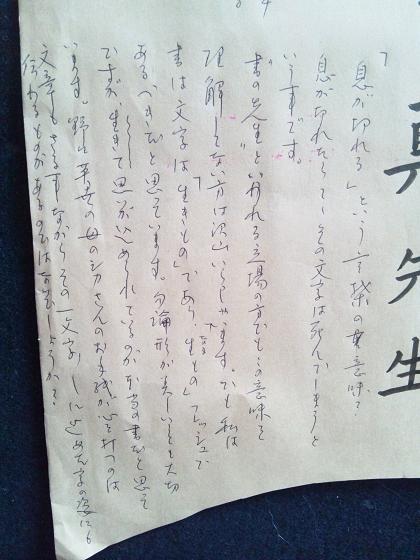 先生
「息が切れる」という言葉の真意味?
息が切れたら その文字は死んでしまうと
いう事です。
"書の先生"といわれる立場の方でもこの意味を
理解してない方は沢山いらっしゃいます。でも私は
書は文字は「生きもの」であり、"生もの"フレッシュで
あるべきだと思っています。勿論形が美しいことも大切
ですが、生きて思いが込められているのが本当の書だと思って
います。野口英世の母のシカさんのお手紙が心を打つのは
文章もさる事ながらその一文字 に込めた字の姿にも
伝わるものがあるのではないでしょうか?